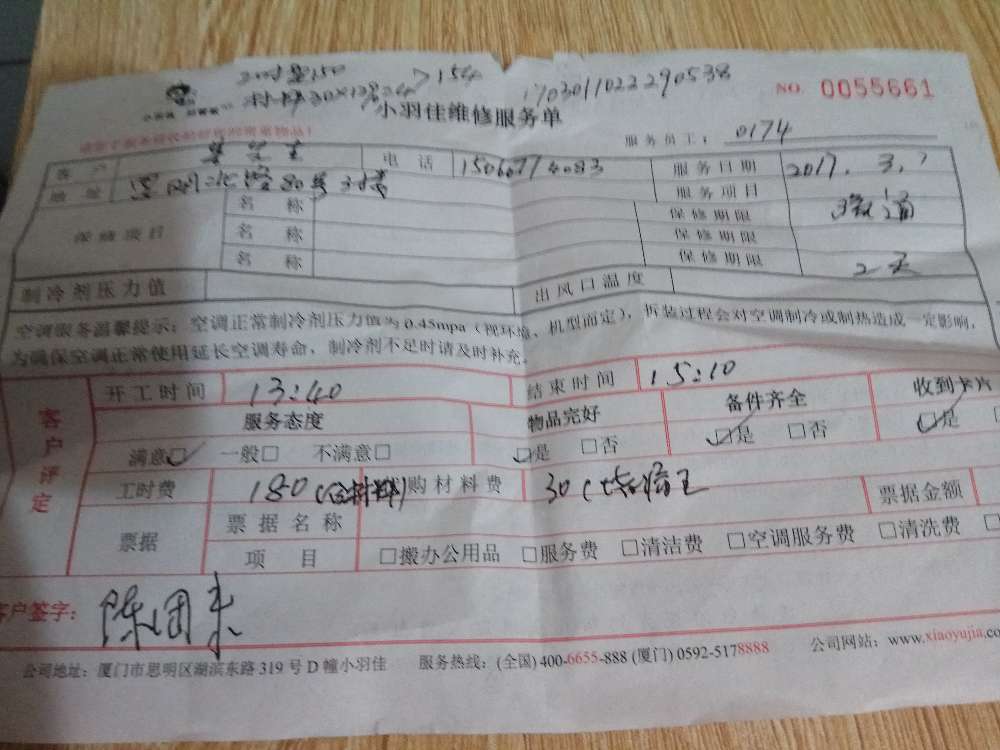 150 > 154
1703011022290538
NO. 0055661
小羽佳维修服务单
服务员工： 0174
客户 电话 15060774083 服务日期 2017. 3. 1
地址 80号 服务项目 疏通
保修项目 名称 保修期限
名称 保修期限
名称 保修期限 2天
制冷剂压力值 出风口温度
空调服务温馨提示：空调正常制冷剂压力值为0.45mpa（视环境、机型而定），拆装过程会对空调制冷或制热造成一定影响，
为确保空调正常使用延长空调寿命，制冷剂不足时请及时补充。
客户评定
开工时间 13:40 结束时间 15:10
服务态度 物品完好 备件齐全 收到卡片
满意□ 一般□ 不满意□ □是 □否 □是 □否 □是
工时费 180(含材料) 购材料费 30 ( 票据金额
票据 票据名称
项目 □搬办公用品 □服务费 □清洁费 □空调服务费 □清洗费
客户签字：
公司地址：厦门市思明区湖滨东路319号D幢小羽佳 服务热线：(全国) 400-6655-888 (厦门) 0592-5178888 公司网站：www.xiaoyujia.co